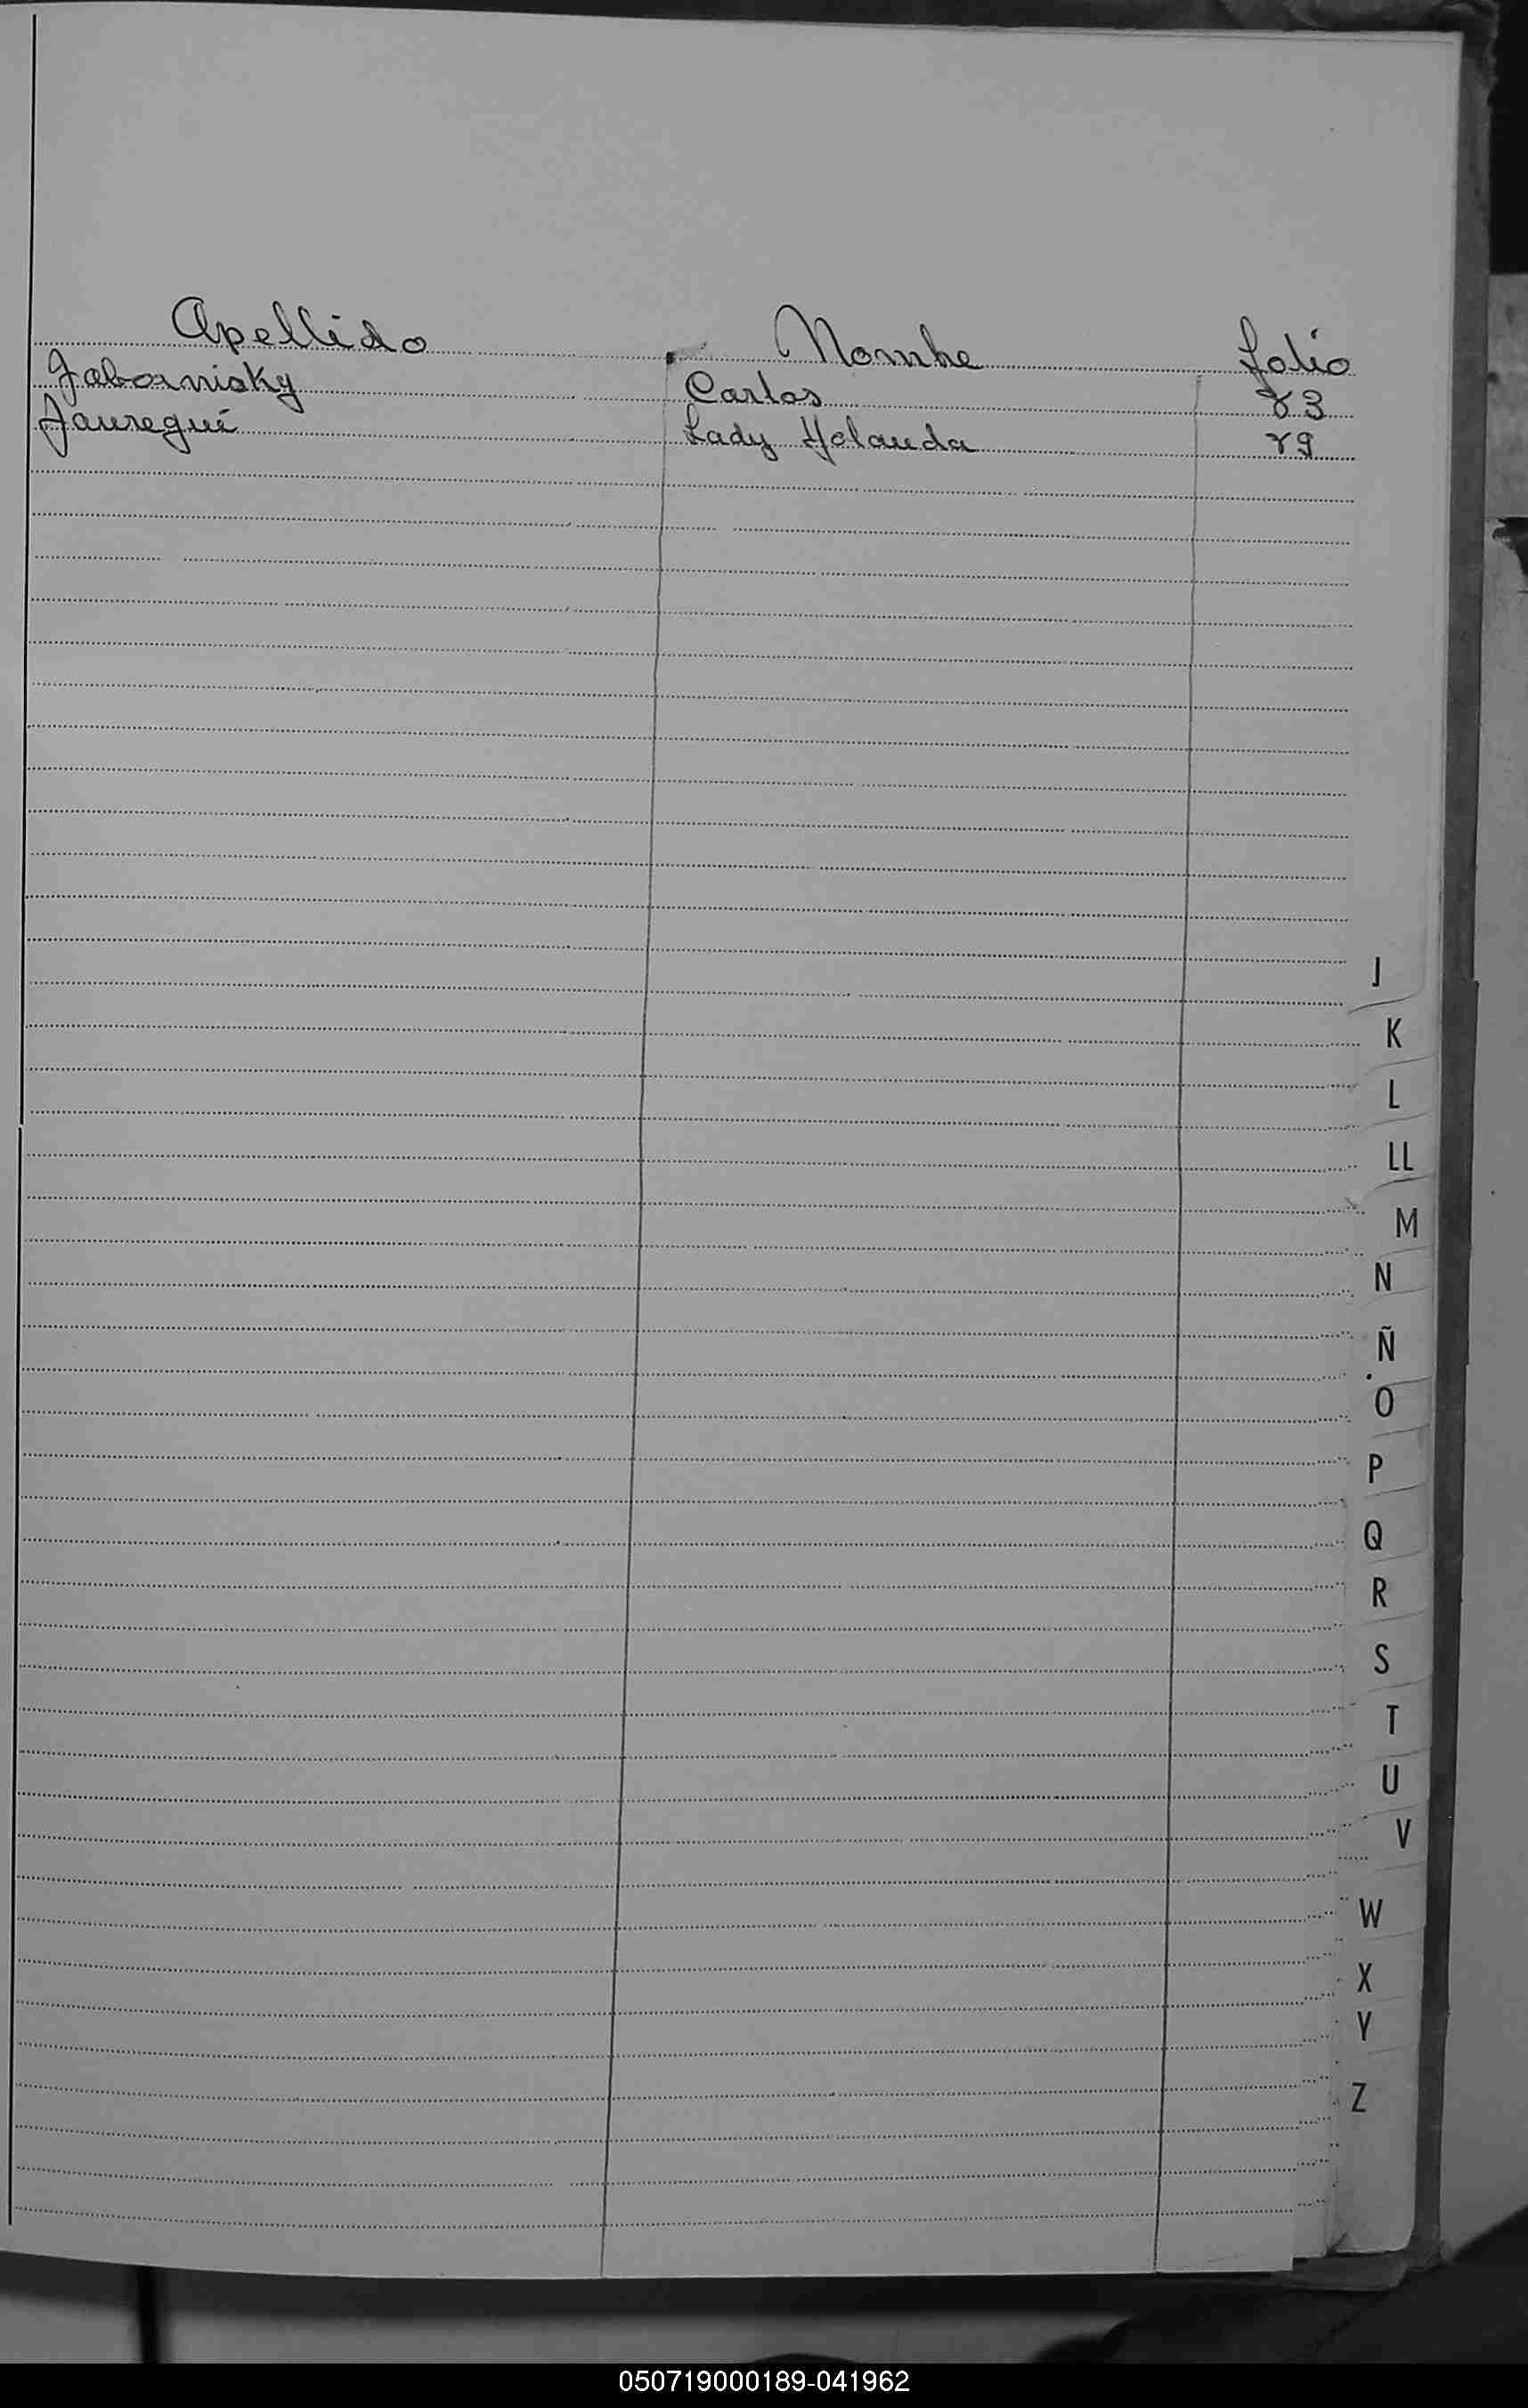 Apellido Nombre folio
Jabornisky Carlos 83
Jauregui Lady Yolanda 79
J
K
L
LL
M
N
Ñ
O
P
Q
R
S
T
U
V
W
X
Y
Z
050719000189-041962